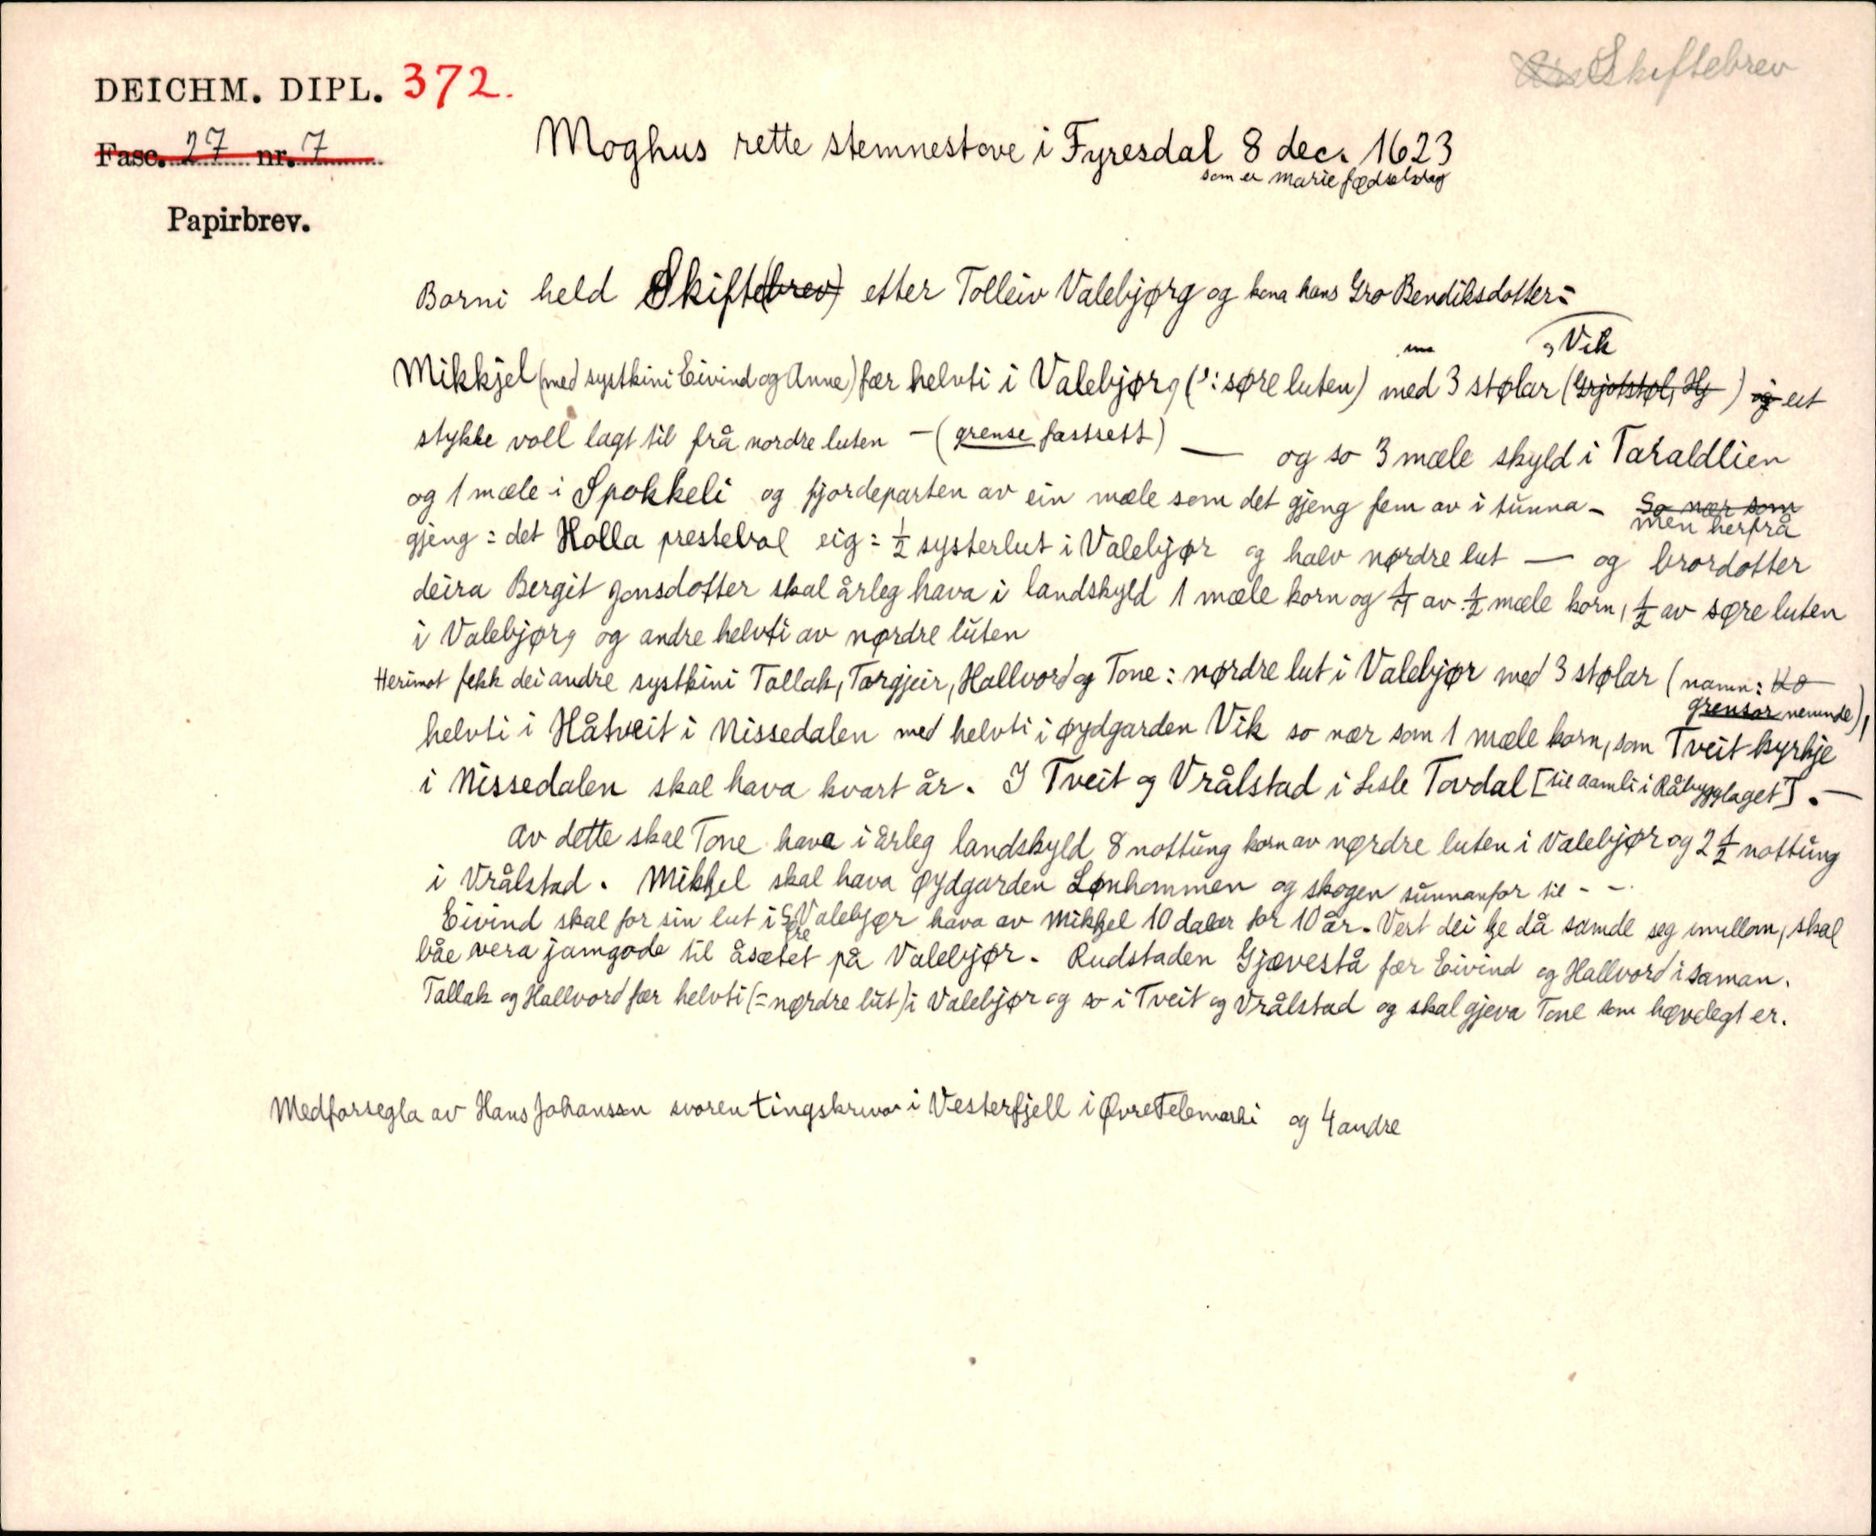 Skiftebrev
DEICHM. DIPL. 372.
Fasc. 27 nr. 7
Papirbrev.
Moghus rette stemnestove i Fyresdal 8 dec. 1623
som er marie fødselsdag
Borni held Skifte(brev) etter Tolleiv Valebjørg og kona hans Gro Bendiksdotter:
Vik
Mikkjel (med systkini Eivind og Anne) fær helvti i Valebjørg (ɔ: søre luten) med 3 stølar (Grjotstøl, Hj ) og eit
stykke voll lagt til frå nordre luten – (grense fastsett) — og so 3 mæle skyld i Taraldlien
og 1 mæle i Spokkeli og fjordeparten av ein mæle som det gjeng fem av i tunna – So nær som
men herfrå
gjeng: det Holla prestebol eig: ½ systerlut i Valebjør og halv nørdre lut — og brordotter
deira Bergit Jonsdotter skal årleg hava i landskyld 1 mæle korn og av ½ mæle korn, ½ av søre luten
i Valebjørg og andre helvti av nørdre luten
Herimot fekk dei andre systkini Tallak, Torgjeir, Hallvord og Tone: nørdre lut i Valebjør med 3 stølar (namn: Ko
grensor nemnde),
helvti i Håtveit i Nissedalen med helvti i øydgarden Vik so nær som 1 mæle korn, som Tveit kyrkje
i Nissedalen skal hava kvart år. I Tveit og Vrålstad i Lisle Tovdal [til Aamli i Råbyggjelaget]. —
av dette skal Tone hava i årleg landskyld 8 nottung korn av nørdre luten i Valebjør og 2 ½ nottung
i Vrålstad. Mikkjel skal hava øydgarden Lonhommen og skogen sunnanfor til – –
Eivind skal for sin lut i Søre Valebjør hava av Mikkjel 10 daler for 10 år. Vert dei kje då samde seg imillom, skal
båe vera jamgode til åsætet på Valebjør. Rudstaden Gjævestå fær Eivind og Hallvord i saman.
Tallak og Hallvord fær helvti (= nørdre lut) i Valebjør og so i Tveit og Vrålstad og skal gjeva Tone som høvelegt er.
Medforsegla av Hans Johansson svoren tingskrivar i Vesterfjell i Øvre Telemarki og 4 andre